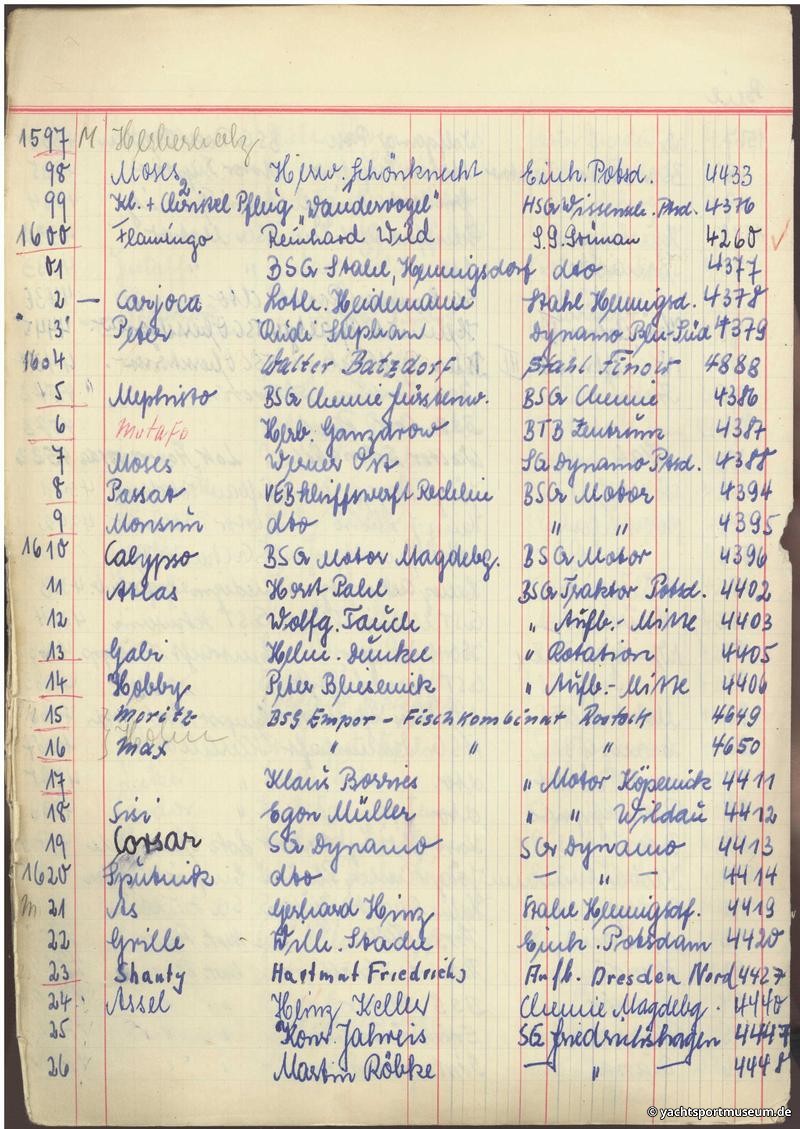 1597 M
98 Moses Herw. Schönknecht Einh. Potsd. 4433
99 Kl. + Christel Pflug "Wandervogel" HSG Wissensch. Ptsd. 4376
1600 Flamingo Reinhard Wild S.G. Grünau 4260 ✓
01 BSG Stahl, Hennigsdorf dto 4377
2 — Carjoca Loth. Heidemann Stahl Hennigsd. 4378
3 Peter Rudi Stephan Dynamo Bln-Süd 4379
1604 Walter Batzdorf Stahl Finow 4888
5 " Mephisto BSG Chemie Fürstenw. BSG Chemie 4386
6 Motafo Herb. Ganzarow BTB Zentrum 4387
7 Moses Werner Ost SG Dynamo Ptsd. 4388
8 Passat VEB Schiffswerft Rechlin BSG Motor 4394
9 Monsun dto " " 4395
1610 Calypso BSG Motor Magdebg. BSG Motor 4396
11 Atlas Horst Pahl BSG Traktor Potsd. 4402
12 Wolfg. Tauch " Aufb.- Mitte 4403
13 Gabi Helm. Dunkel " Rotation 4405
14 Hobby Peter Bliesenick " Aufb.- Mitte 4406
15 Moritz BSG Empor - Fischkombinat Rostock 4649
16 Max " " " 4650
17 Klaus Borries " Motor Köpenick 4411
18 Sisi Egon Müller " " Wildau 4412
19 Corsar SG Dynamo SG Dynamo 4413
1620 Sputnik dto — " — 4414
m 21 As Gerhard Hinz Stahl Hennigsdf. 4419
22 Grille Willi. Stade Einh. Potsdam 4420
23 Shanty Hartmut Friedrichs Aufb. Dresden Nord 4427
24 Assel Heinz Keller Chemie Magdebg. 4440
25 Konr. Jahreis SG Friedrichshagen 4447
26 Martin Röbke — " — 4448
© yachtsportmuseum.de